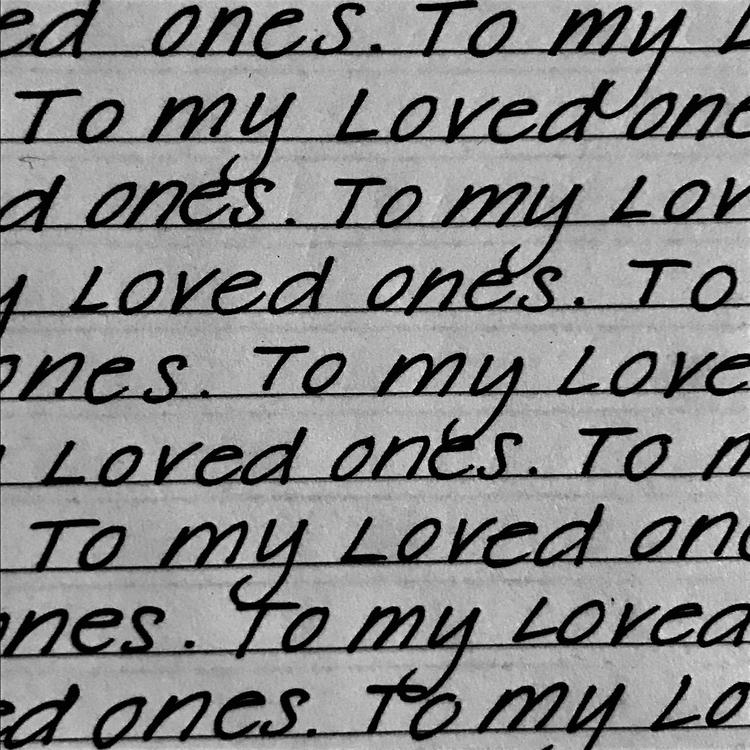 ed ones. To my L
To my Loved one
d ones. To my Lov
y Loved ones. To
ones. To my Love
Loved ones. To m
To my Loved one
ones. To my Loved
ed ones. To my Lo